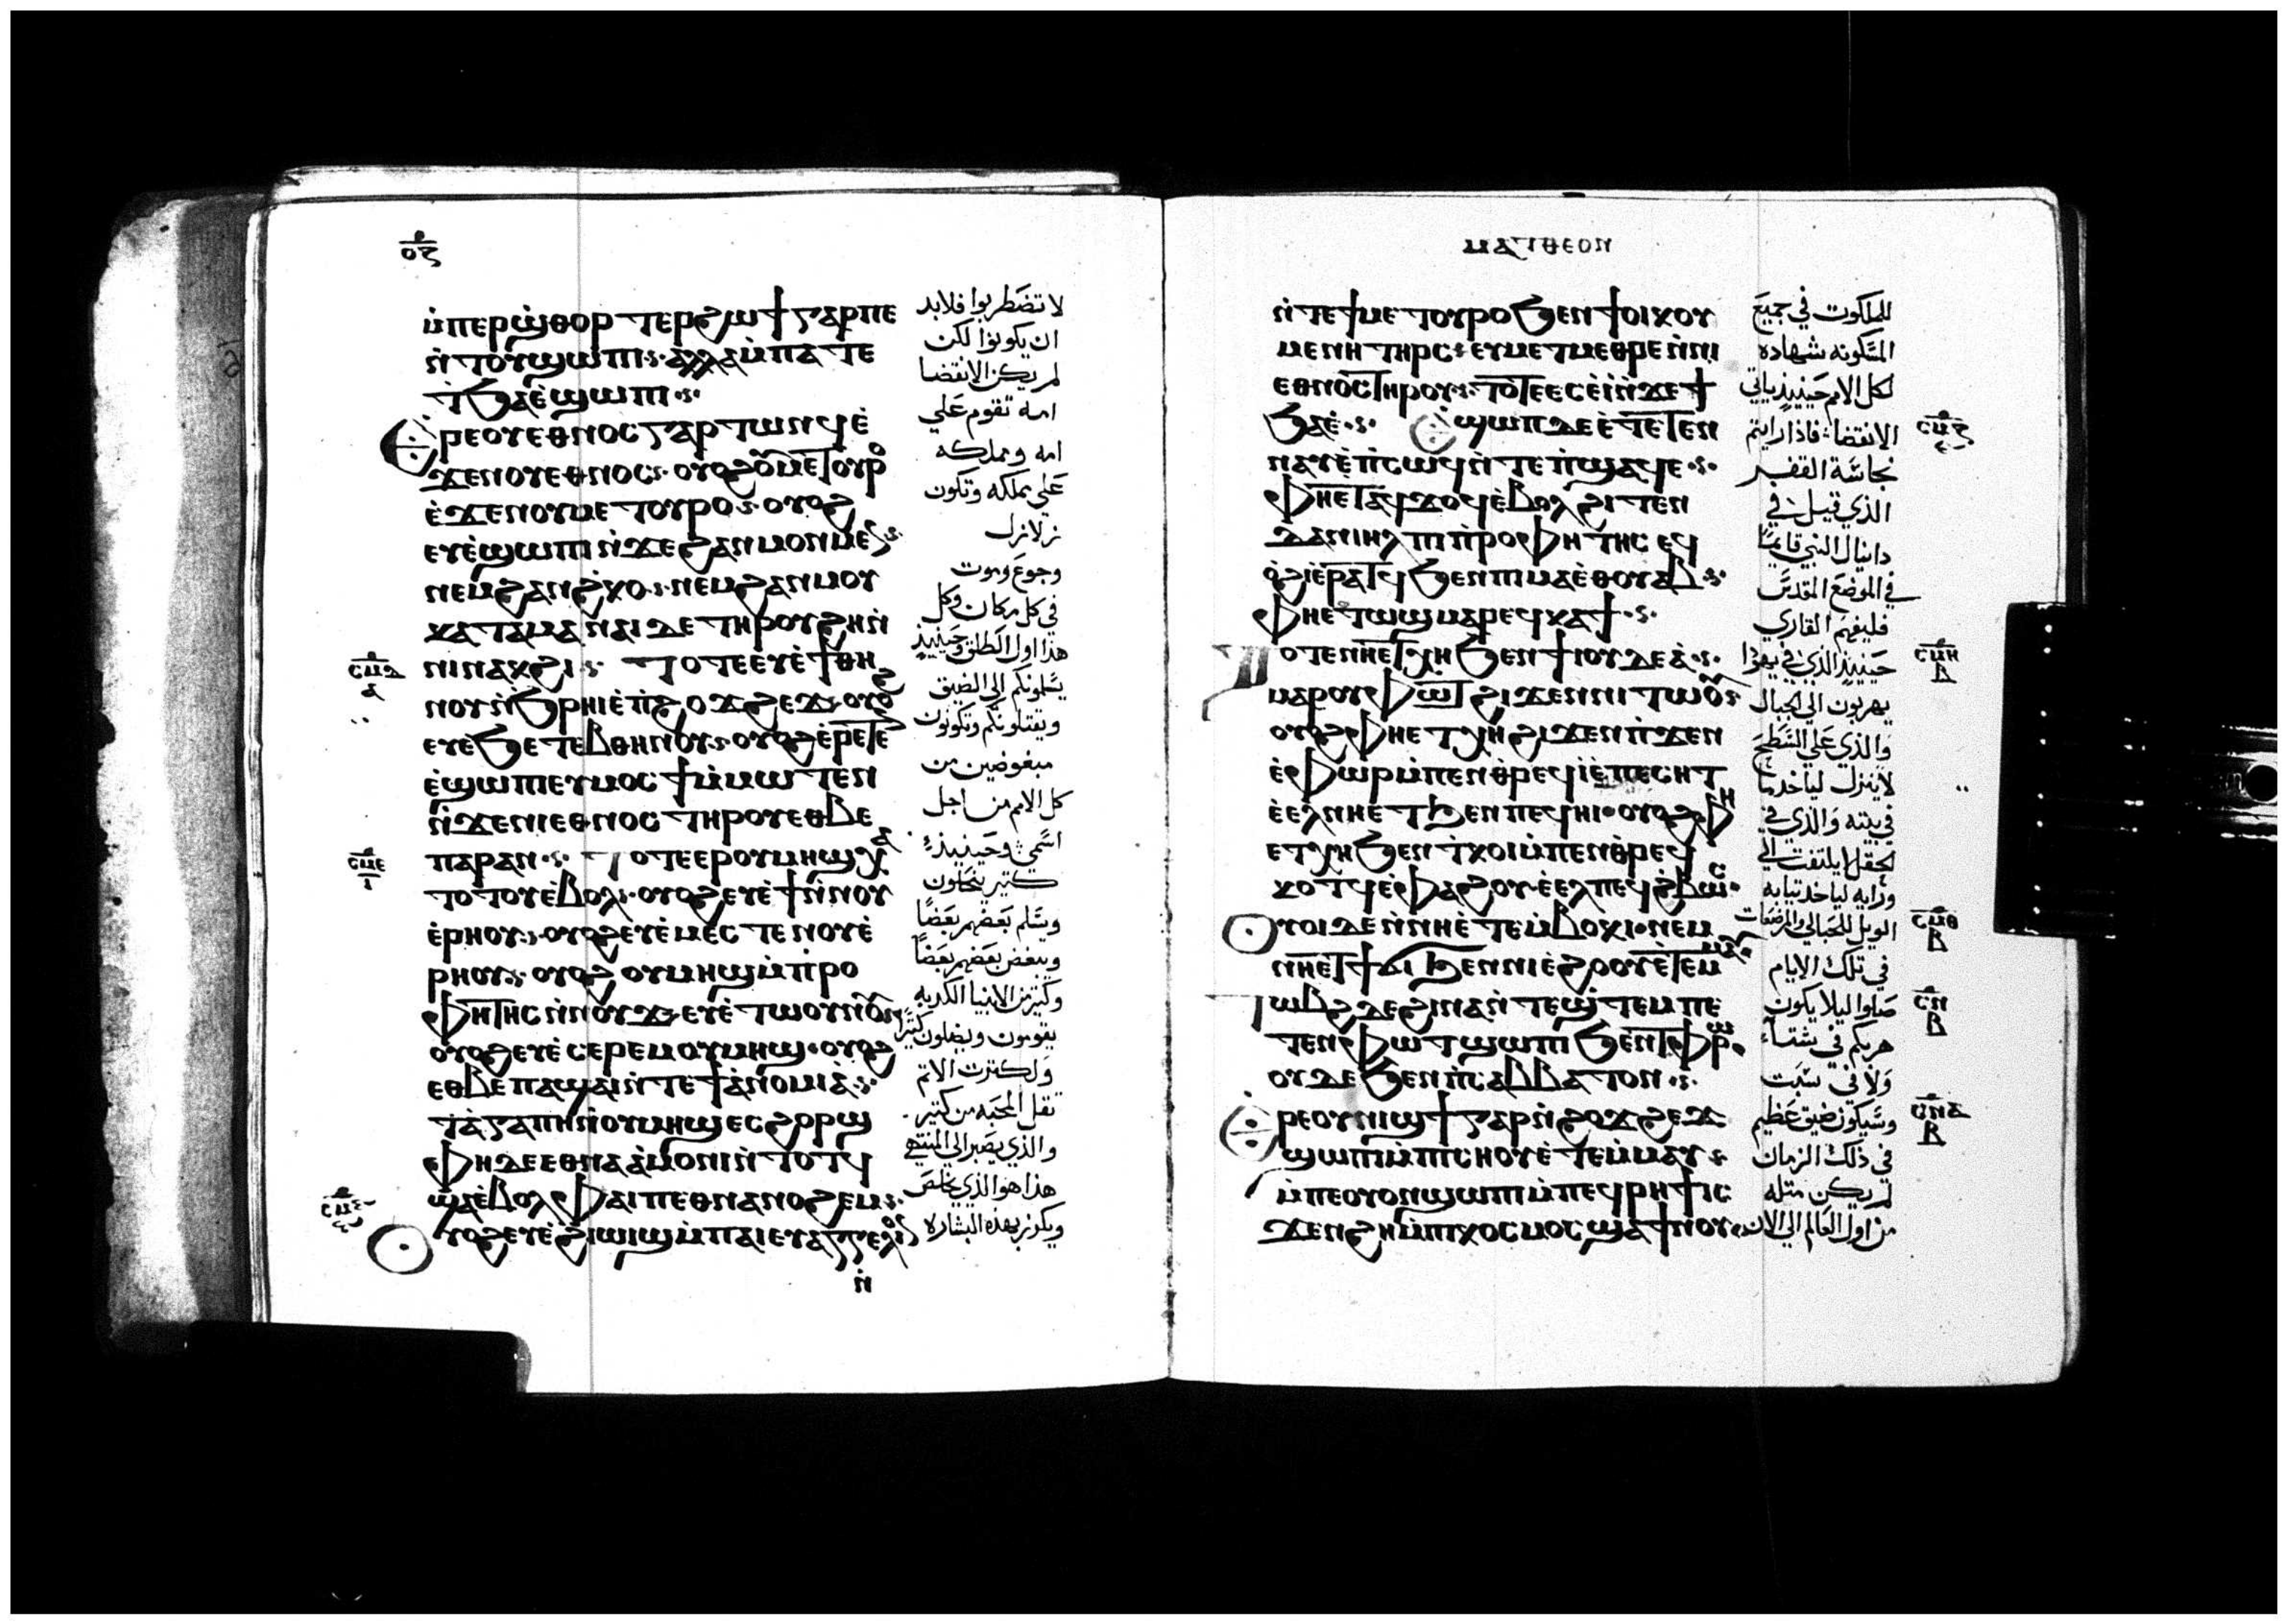 ⲟⲍ
ⲙ̀ⲡⲉⲣϣ̀ⲑⲟⲣⲧⲉⲣϩⲱϯⲅⲁⲣⲡⲉ
ⲛ̀ⲧⲟⲩϣⲱⲡⲓ ⲁⲗⲗⲁⲙ̀ⲡⲁⲧⲉ
ϯϧⲁⲉ̀ϣⲱⲡⲓ
ⲉⲣⲉⲟⲩⲉⲑⲛⲟⲥⲅⲁⲣⲧⲱⲛϥⲉ̀
ϫⲉⲛⲟⲩⲉⲑⲛⲟⲥ ⲟⲩⲟϩⲟⲩⲙⲉⲧⲟⲩⲣⲟ
ⲉ̀ϫⲉⲛⲟⲩⲙⲉⲧⲟⲩⲣⲟ ⲟⲩⲟϩ
ⲉⲩⲉ̀ϣⲱⲡⲓⲛ̀ϫⲉϩⲁⲛⲙⲟⲛⲙⲉⲛ
ⲛⲉⲙϩⲁⲛϩ̀ⲕⲟ ⲛⲉⲙϩⲁⲛⲙⲟⲩ
ⲕⲁⲧⲁⲙⲁ ⲛⲁⲓⲇⲉⲧⲏⲣⲟⲩϩⲏⲛ̀
ⲥⲙⲇ
ⲛⲓⲛⲁⲕϩⲓ ⲧⲟⲧⲉⲉⲩⲉ̀ϯⲑⲏ
ⲛⲟⲩⲛ̀ϧⲣⲏⲓⲉ̀ⲡ̀ϩⲟϫϩⲉϫ ⲟⲩⲟϩ
ⲉⲩⲉ̀ϧⲉⲧⲉⲃⲑⲏⲛⲟⲩ ⲟⲩⲟϩⲉ̀ⲣⲉⲧⲉ
ⲉ̀ϣⲱⲡⲓⲉⲩⲙⲟⲥϯⲙ̀ⲙⲱⲧⲉⲛ
ⲛ̀ϫⲉⲛⲓⲉⲑⲛⲟⲥⲧⲏⲣⲟⲩⲉⲑⲃⲉ
ⲥⲙⲉ
ⲡⲁⲣⲁⲛ ⲧⲟⲧⲉⲉⲣⲟⲩⲙⲏϣ
ⲧⲟⲧⲟⲩⲉ̀ⲃⲟⲗ ⲟⲩⲟϩⲉⲩⲉ̀ϯⲛ̀ⲛⲟⲩ
ⲉ̀ⲣⲏⲟⲩ ⲟⲩⲟϩⲉⲩⲉ̀ⲙⲉⲥⲧⲉⲛⲟⲩⲉ̀
ⲣⲏⲟⲩ ⲟⲩⲟϩ ⲟⲩⲙⲏϣⲙ̀ⲡ̀ⲣⲟ
ⲫⲏⲧⲏⲥⲛ̀ⲛⲟⲩϫ ⲉⲩⲉ̀ⲧⲱⲟⲩⲛⲟⲩ
ⲟⲩⲟϩⲉⲩⲉ̀ⲥⲉⲣⲉⲙⲟⲩⲙⲏϣ ⲟⲩⲟϩ
ⲉⲑⲃⲉⲡⲁϣⲁⲓⲛ̀ⲧⲉϯⲁ̀ⲛⲟⲙⲓⲁ̀
ϯⲁ̀ⲅⲁⲡⲏⲛ̀ⲟⲩⲙⲏϣⲉⲥϩⲣⲟϣ
ⲫⲏⲇⲉⲉⲑⲛⲁⲁ̀ⲙⲟⲛⲓⲛ̀ⲧⲟⲧϥ
ϣⲁⲉ̀ⲃⲟⲗ ⲫⲁⲓⲡⲉⲑⲛⲁⲛⲟϩⲉⲙ
ⲟⲩⲟϩⲉⲩⲉ̀ϩⲓⲱⲓϣⲙ̀ⲡⲁⲓⲉⲩⲁⲅⲅⲉⲗⲓⲟⲛ
ⲛ̀
لا تضطربوا فلابد
ان يكونوا لكن
لم يكن الانقضا
امه تقوم علي
امه ومملكه
علي مملكه وتكون
زلازل
وجوع وموت
في كل مكان وكل
هذا اول الطلق وحينيذ
يسلمونكم الي الضيق
ويقتلونكم وتكونون
مبغوضين من
كل الامم من اجل
اسمي وحينيذ
كتير يشكون
ويسلم بعضهم بعضا
ويبغض بعضهم بعضا
وكتير من الانبيا الكدبه
يقومون ويضلون كتيرا
ولكترت الاتم
تقل المحبه من كتير
والذي يصبر الي المنتهي
هذا هو الذي يخلص
ويكرز بهذه البشاره
ⲙⲁⲧⲑⲉⲟⲛ
ⲛ̀ⲧⲉϯⲙⲉⲧⲟⲩⲣⲟϧⲉⲛϯⲟⲓⲕⲟⲩ
ⲙⲉⲛⲏⲧⲏⲣⲥ ⲉⲩⲙⲉⲧⲙⲉⲑⲣⲉⲛ̀ⲛⲓ
ⲉⲑⲛⲟⲥⲧⲏⲣⲟⲩ ⲧⲟⲧⲉⲉⲥⲉ̀ⲓ̀ⲛ̀ϫⲉϯ
ϧⲁⲉ̀ ⲉϣⲱⲡⲇⲉⲉ̀ⲧⲉⲧⲉⲛ
ⲥⲙⲍ
ⲛⲁⲩⲉ̀ⲡ̀ⲥⲱϥⲛ̀ⲧⲉⲡ̀ϣⲁϥⲉ
ⲫⲏⲉⲧⲁϥϫⲟϥⲉ̀ⲃⲟⲗϩⲓⲧⲉⲛ
ⲇⲁⲛⲓⲏⲗⲡⲓⲡ̀ⲣⲟⲫⲏⲧⲏⲥ ⲉϥ
ⲟ̀ϩⲓⲉ̀ⲣⲁⲧϥϧⲉⲛⲡⲓⲙⲁⲉ̀ⲑⲟⲩⲁⲃ
ⲫⲏⲉⲧⲱϣⲙⲁⲣⲉϥⲕⲁϯ
ⲧⲟⲧⲉⲛⲏⲉⲧⲭⲏϧⲉⲛϯⲓⲟⲩⲇⲉⲁ̀
ⲥⲙⲏ
ⲃ
ⲙⲁⲣⲟⲩⲫⲱⲧϩⲓϫⲉⲛⲛⲓⲧⲱⲟⲩ
ⲟⲩⲟϩⲫⲏⲉⲧⲭⲏϩⲓϫⲉⲛⲡ̀ϫⲉⲛ
ⲉ̀ⲫⲱⲣⲙ̀ⲡⲉⲛⲑ̀ⲣⲉϥⲓ̀ⲉ̀ⲡⲉⲥⲏⲧ
ⲉ̀ⲉⲗⲛⲏⲉⲧϧⲉⲛⲡⲉϥⲏⲓ ⲟⲩⲟϩⲫⲏ
ⲉⲧⲭⲏϧⲉⲛⲧ̀ⲕⲟⲓⲙ̀ⲡⲉⲛⲑ̀ⲣⲉϥ
ⲕⲟⲧϥⲉ̀ⲫⲁϩⲟⲩ ⲉ̀ⲉⲗⲡⲉϥϩ̀ⲃⲱⲥ
ⲟⲩⲟⲓⲇⲉⲛ̀ⲛⲏⲉ̀ⲧⲉⲙⲃⲟⲕⲓ ⲛⲉⲙ
ⲥⲙⲑ
ⲃ
ⲛⲏⲉⲧϯϭⲓϧⲉⲛⲛⲓⲉ̀ϩⲟⲟⲩⲉ̀ⲧⲉⲙⲙⲁⲩ
ⲧⲱⲃϩⲇⲉϩⲓⲛⲁⲛ̀ⲧⲉϣ̀ⲧⲉⲙⲡⲉ
ⲥⲛ
ⲃ
ⲧⲉⲛⲫⲱⲧϣⲱⲡⲓϧⲉⲛⲧⲫⲣⲱ
ⲟⲩⲇⲉϧⲉⲛⲡ̀ⲥⲁⲃⲃⲁⲧⲟⲛ
ⲉⲣⲉⲟⲩⲛⲓϣϯⲅⲁⲣⲛ̀ϩⲟϫϩⲉϫ
ⲃ
ϣⲱⲡⲓⲙ̀ⲡⲓⲥⲛⲟⲩⲉ̀ⲧⲉⲙ̀ⲙⲁⲩ
ⲙ̀ⲡⲉⲟⲩⲟⲛϣⲱⲡⲓⲙ̀ⲡⲉϥⲣⲏϯⲓⲥ
ϫⲉⲛϩⲏⲙ̀ⲡⲓⲕⲟⲥⲙⲟⲥϣⲁϯⲛⲟⲩ
للملكوت في جميع
المسكونه شهاده
لكل الامم حينيذ ياتي
الانقضا فاذا رايتم
نجاسة القفر
الذي قيل في
دانيال النبي قايما
في الموضع المقدس
فليفهم القاري
حينيذ الذي في يهودا
يهربون الي الجبال
والذي علي السطح
لا ينزل لياخد ما
في بيته والذي في
الحقل لا يلتفت الي
ورايه لياخد تيابه
الويل للحبالي والمرضعات
في تلك الايام
صلوا ليلا يكون
هربكم في شتاء
ولا في سبت
وسيكون ضيق عظيم
في ذلك الزمان
لم يكن متله
من اول العالم الي الان